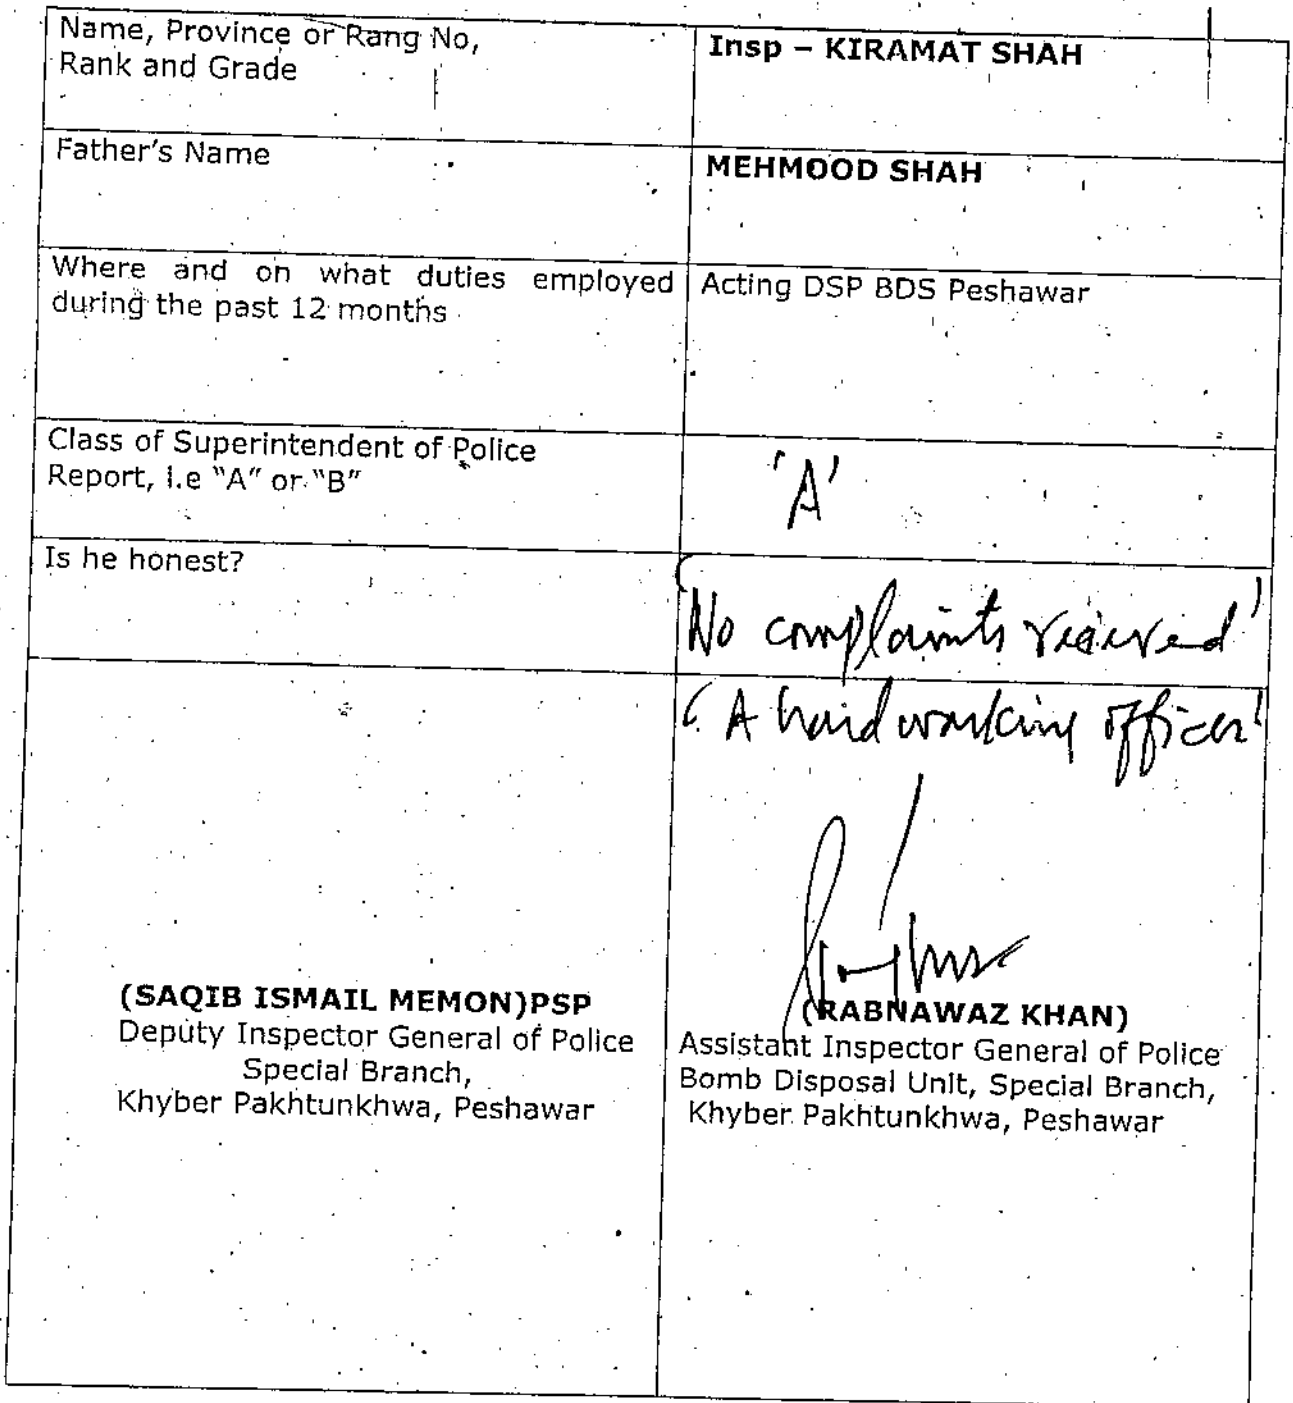 Name, Province or Rang No,
Rank and Grade
Insp – KIRAMAT SHAH
Father's Name
MEHMOOD SHAH
Where and on what duties employed
during the past 12 months
Acting DSP BDS Peshawar
Class of Superintendent of Police
Report, i.e "A" or "B"
'A'
Is he honest?
'No complaints received'
'A hard working officer'
(SAQIB ISMAIL MEMON)PSP
Deputy Inspector General of Police
Special Branch,
Khyber Pakhtunkhwa, Peshawar
(RABNAWAZ KHAN)
Assistant Inspector General of Police
Bomb Disposal Unit, Special Branch,
Khyber Pakhtunkhwa, Peshawar